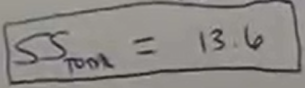 SS_Total = 13.6